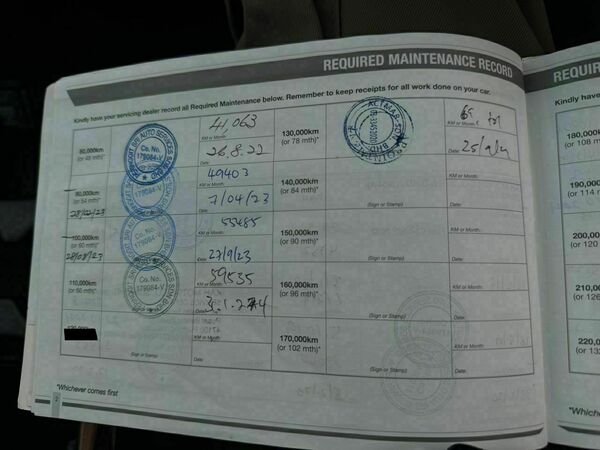 REQUIRED MAINTENANCE RECORD
REQUIR
Kindly have your servicing dealer record all Required Maintenance below. Remember to keep receipts for all work done on your car.
Kindly have
80,000km
(or 48 mth)*
Co. No.
179084-V
41063
KM or Month:
26.8.22
Date:
130,000km
(or 78 mth)*
KM or Month:
Date:
180,000
(or 108 m
90,000km
(or 54 mth)*
28/02/23
Co. No.
179084-V
49403
KM or Month:
7/04/23
Date:
140,000km
(or 84 mth)*
(Sign or Stamp)
KM or Month:
Date:
190,000
(or 114
100,000km
(or 60 mth)*
28/08/23
Co. No.
179084-V
55485
KM or Month:
27/9/23
Date:
150,000km
(or 90 mth)*
(Sign or Stamp)
KM or Month:
Date:
200,000
(or 120
110,000km
(or 66 mth)*
Co. No.
179084-V
59535
KM or Month:
Date:
160,000km
(or 96 mth)*
(Sign or Stamp)
KM or Month:
Date:
210,00
(or 126
(Sign or Stamp)
KM or Month:
Date:
170,000km
(or 102 mth)*
(Sign or Stamp)
KM or Month:
Date:
220,0
(or 13
*Whichever comes first
*Whiche
2